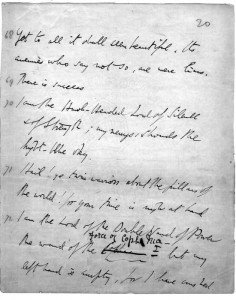 20
68 Yet to all it shall seem beautiful. Its
enemies who say not so, are mere liars.
69 There is success
70 I am the Hawk-Headed Lord of Silence
& of Strength; my nemyss shrouds the
night-blue sky.
71 Hail! ye twin warriors about the pillars of
the world! for your time is nigh at hand
72 I am the Lord of the Double Wand of Power
Force of Coph Nia
the wand of the but my
left hand is empty, for I have crushed